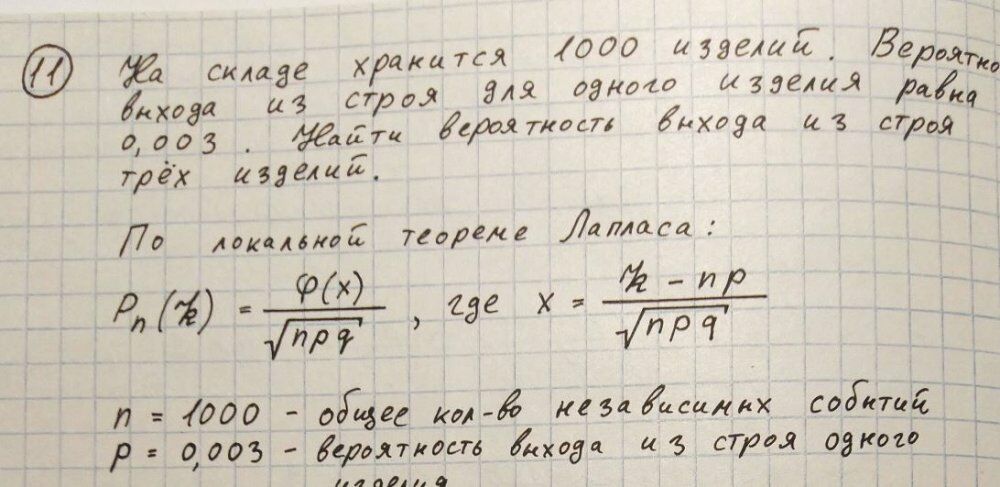 11 На складе хранится 1000 изделий. Вероятно
выхода из строя для одного изделия равна
0,003. Найти вероятность выхода из строя
трёх изделий.
По локальной теореме Лапласа:
Pn(k) = φ(x)/√npq, где x = k - np/√npq
n = 1000 - общее кол-во независимых событий
p = 0,003 - вероятность выхода из строя одного
изделия